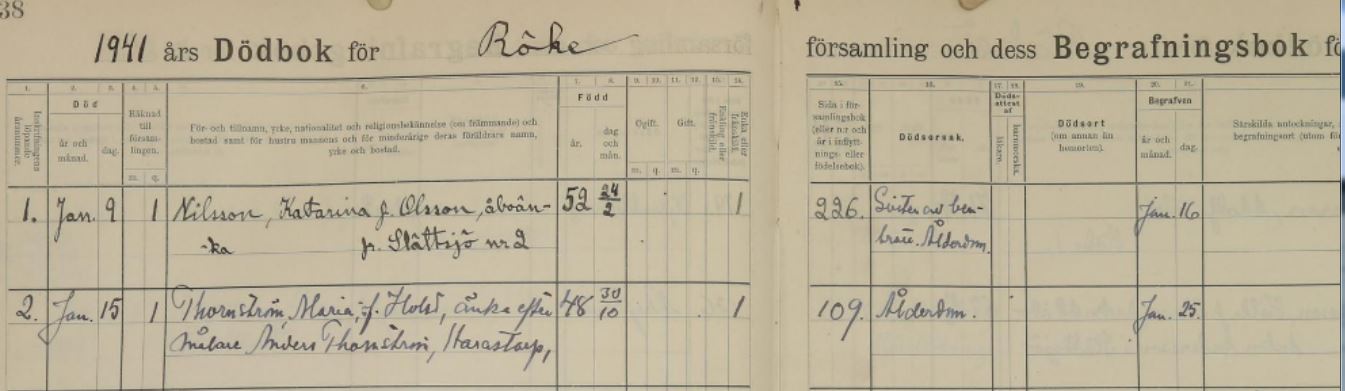 38
1941 års Dödbok för Röke församling och dess Begrafningsbok fö
1. 2. 3. 4. 5. 6. 7. 8. 9. 10. 11. 12. 13. 14. 15. 16. 17. 18. 19. 20. 21.
Inskrifningens löpande årsnummer.
Död
år och månad.
dag.
Räknad till försam-lingen.
m. q.
För- och tillnamn, yrke, nationalitet och religionsbekännelse (om främmande) och
bostad samt för hustru mannens och för minderårige deras föräldrars namn,
yrke och bostad.
Född
år.
dag och mån.
Ogift.
m. q.
Gift.
m. q.
Enkling eller frånskild.
Enka eller frånskild.
Sida i för-
samlingsbok
(eller n:r och
år i inflytt-
nings- eller
födelsebok).
Dödsorsak.
Döds-
attest
af
läkare.
barnmorska.
Dödsort
(om annan än
hemorten).
Begrafven
år och månad.
dag.
Särskilda anteckningar,
begrafningsort (utom fö
1. Jan. 9 1 Nilsson, Katarina f. Olsson, åboän- 52 24/2 1 226. Jan. 16
-ka fr. Slättsjö nr 2 Ålderdom.
2. Jan. 15 1 Thornström, Maria, f. Holst, änka efter 48 30/10 1 109. Ålderdom. Jan. 25.
målare Anders Thornström, Harastorp,